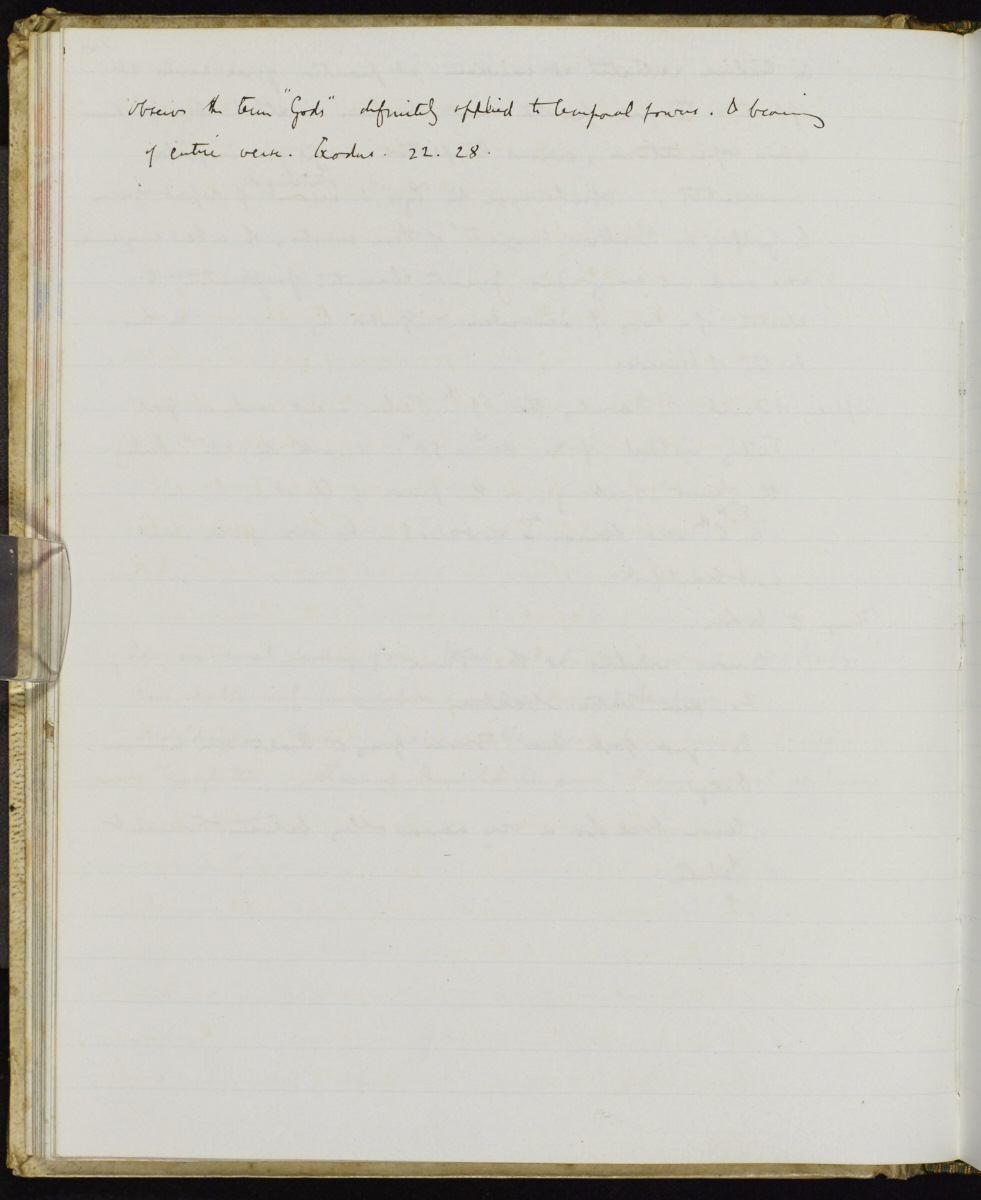 observe the term "Gods" definitely applied to temporal powers. & bearing
of entire verse. Exodus. 22. 28.